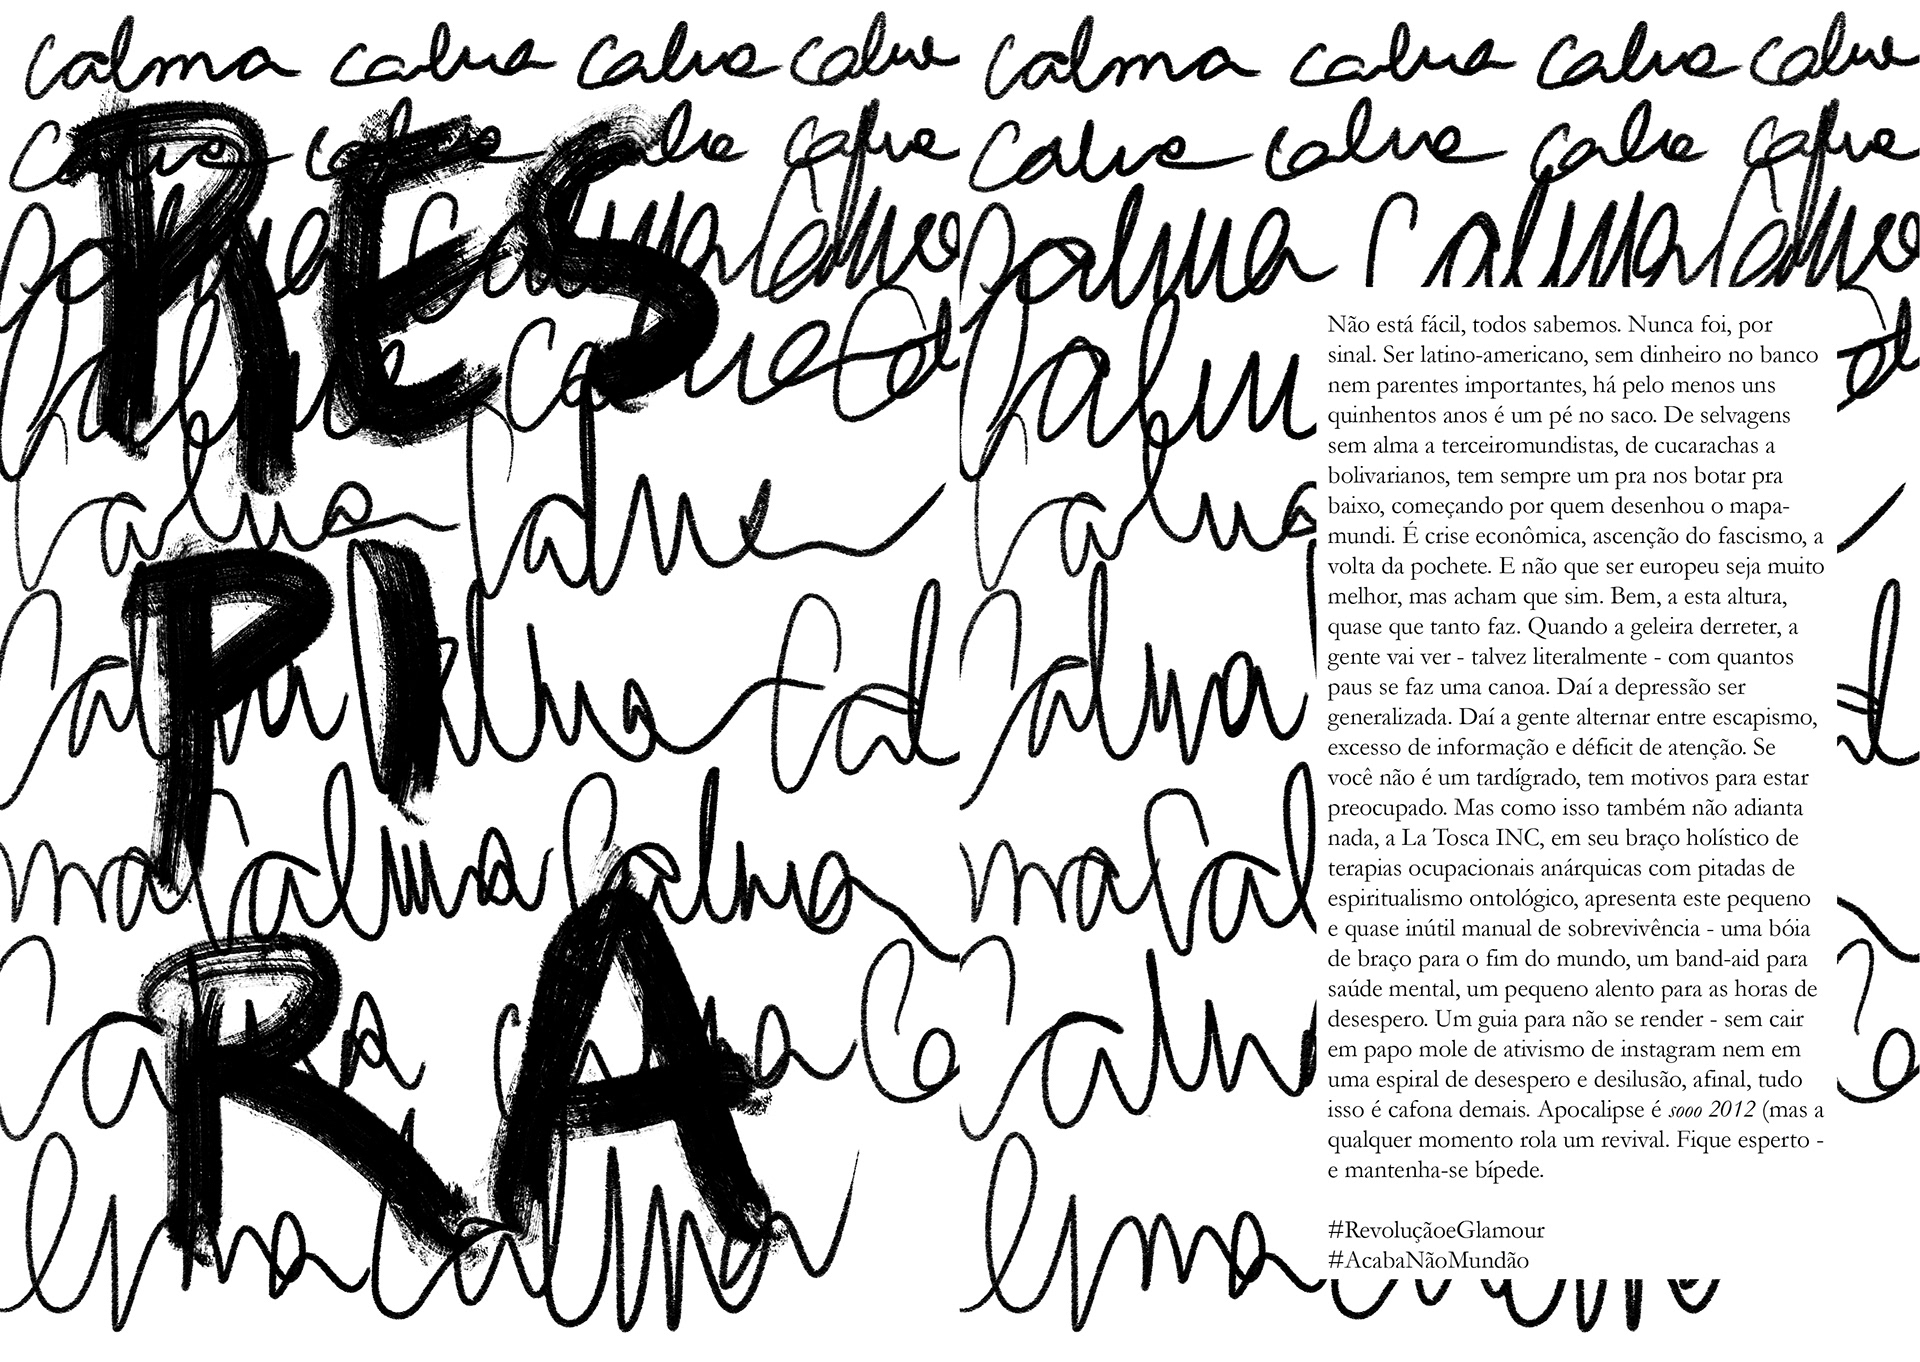 calma calma calma calma
calma calma calma calma
calma calma calma
calma calma cal
calma calma
calma calma cal
ma calma calma
calma calma ca
lma calma
RES
PI
RA
calma calma calma calma
calma calma calma calma
calma calma calma
Não está fácil, todos sabemos. Nunca foi, por
sinal. Ser latino-americano, sem dinheiro no banco
nem parentes importantes, há pelo menos uns
quinhentos anos é um pé no saco. De selvagens
sem alma a terceiromundistas, de cucarachas a
bolivarianos, tem sempre um pra nos botar pra
baixo, começando por quem desenhou o mapa-
mundi. É crise econômica, ascenção do fascismo, a
volta da pochete. E não que ser europeu seja muito
melhor, mas acham que sim. Bem, a esta altura,
quase que tanto faz. Quando a geleira derreter, a
gente vai ver - talvez literalmente - com quantos
paus se faz uma canoa. Daí a depressão ser
generalizada. Daí a gente alternar entre escapismo,
excesso de informação e déficit de atenção. Se
você não é um tardígrado, tem motivos para estar
preocupado. Mas como isso também não adianta
nada, a La Tosca INC, em seu braço holístico de
terapias ocupacionais anárquicas com pitadas de
espiritualismo ontológico, apresenta este pequeno
e quase inútil manual de sobrevivência - uma bóia
de braço para o fim do mundo, um band-aid para
saúde mental, um pequeno alento para as horas de
desespero. Um guia para não se render - sem cair
em papo mole de ativismo de instagram nem em
uma espiral de desespero e desilusão, afinal, tudo
isso é cafona demais. Apocalipse é sooo 2012 (mas a
qualquer momento rola um revival. Fique esperto -
e mantenha-se bípede.
#RevoluçãoeGlamour
#AcabaNãoMundão